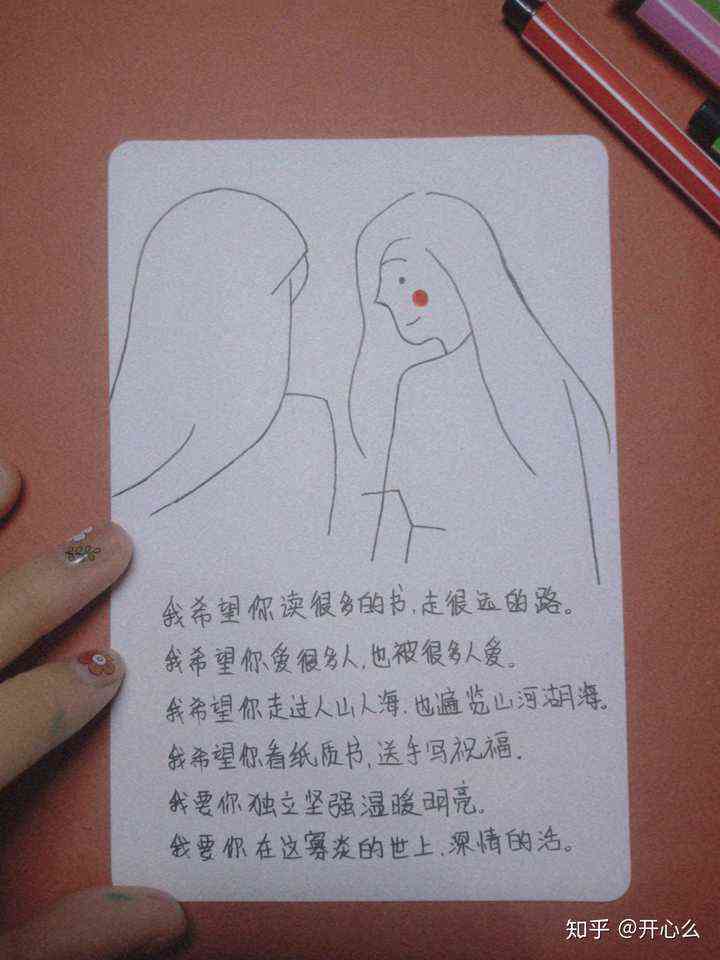 我希望你读很多的书,走很远的路。
我希望你爱很多人,也被很多人爱。
我希望你走过人山人海,也遍览山河湖海。
我希望你看纸质书,送手写祝福.
我要你独立坚强温暖明亮。
我要你在这寡淡的世上,深情的活。
知乎 @开心么